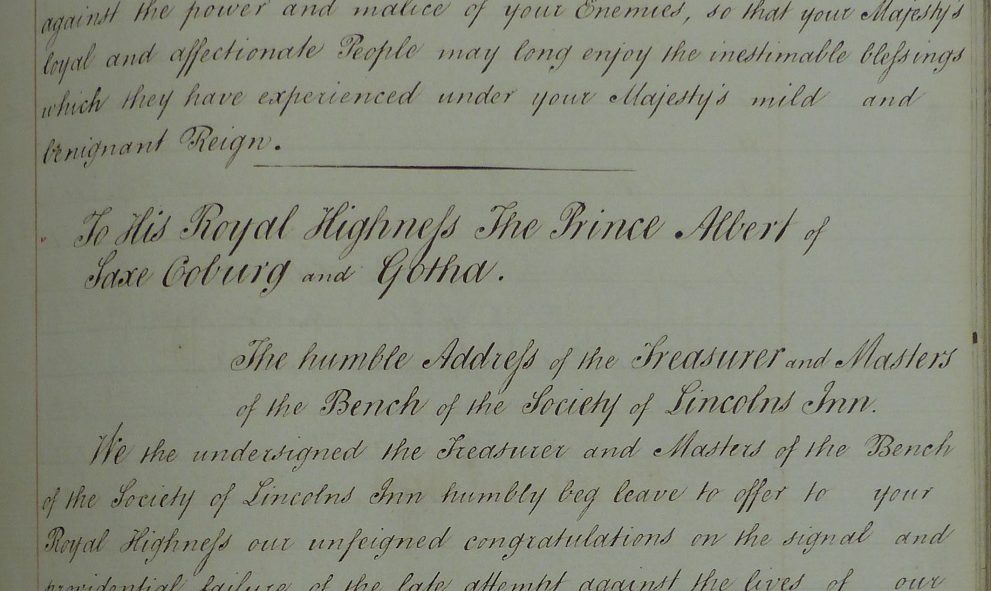 against the power and malice of your Enemies, so that your Majesty's
loyal and affectionate People may long enjoy the inestimable bleſsings
which they have experienced under your Majesty's mild and
benignant Reign.
To His Royal Highneſs The Prince Albert of
Saxe Coburg and Gotha.
The humble Addreſs of the Treasurer and Masters
of the Bench of the Society of Lincolns Inn.
We the undersigned the Treasurer and Masters of the Bench
of the Society of Lincolns Inn humbly beg leave to offer to your
Royal Highneſs our unfeigned congratulations on the signal and
providential failure of the late attempt against the lives of our